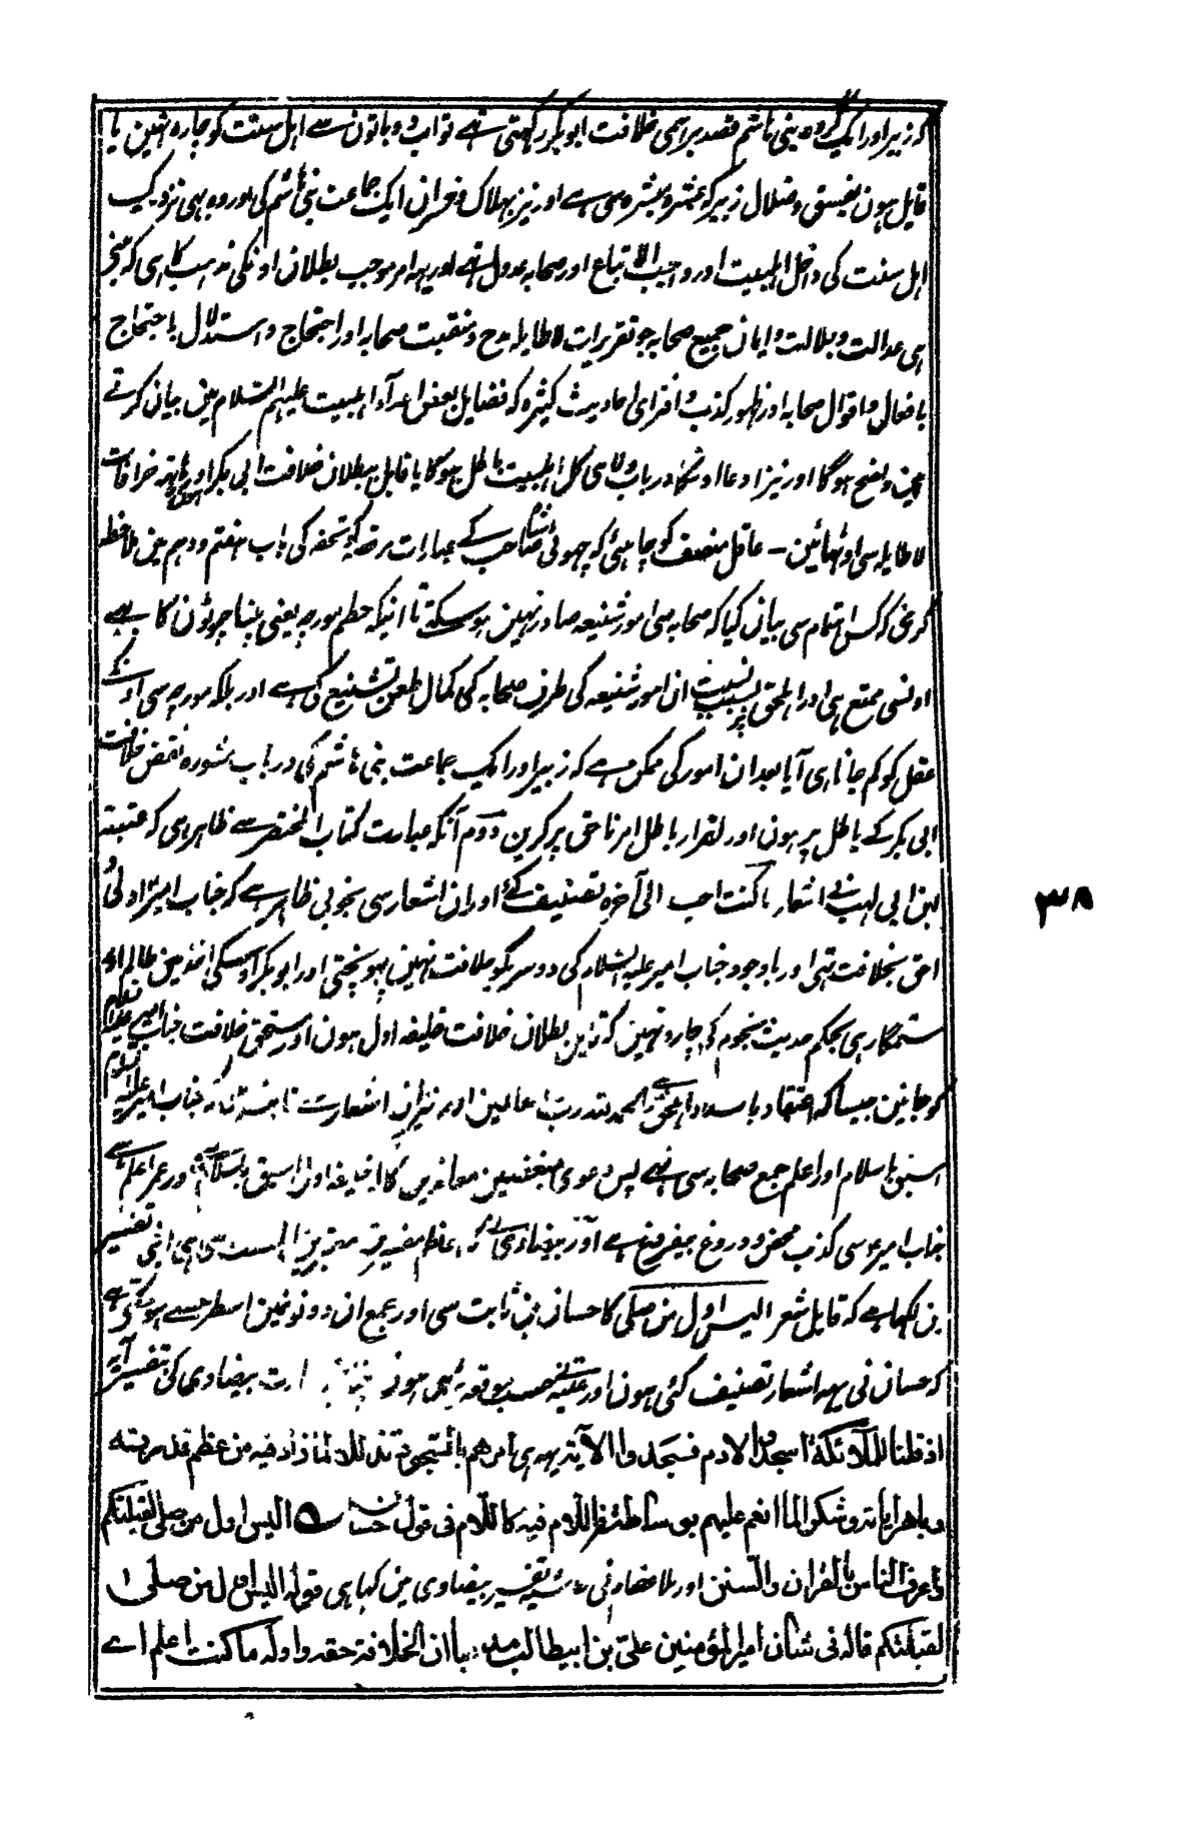 کہ زبیر اور ایک گروہ بنی ہاشم قصد برہمی خلافت ابو بکر رکہتی تہے تو اب دو باتون سے اہل سنت کو چارہ نہین یا
قایل ہون بفسق و ضلال زبیر کو عشرہ مبشرہ سی ہے اور نیز بہلاک و خسران ایک جماعت بنی ہاشم کی اور وہ بہی نزدیک
اہل سنت کی داخل اہلبیت اور واجب الاتباع اور صحابہ عدول تہے اور یہہ امر موجب بطلان اونکی مذہب کا ہی کہ مبنی
ہی عدالت و جلالت و ایمان جمیع صحابہ جو تقریرات لاطایلہ مدح و منقبت صحابہ اور احتجاج و استدلال باحتجاج
بافعال و اقوال صحابہ اور ظہور کذب و افترای احادیث کثیرہ کہ فضایل بعض اعداء اہلبیت علیہم السلام مین بیان کرتے
ہین واضح ہوگا اور نیز ادعا اونکا در باب ولای کل اہلبیت باطل ہوگا یا قابل بطلان خلافت ابی بکر اور ہاتہہ خرافات
لاطایلہ سی اوٹہائین ـ عاقل منصف کو چاہئی کہ چہوٹی شاہصاحب کے عبارات مرضیہ کو تحفہ کی باب ہفتم و دہم مین ملاحظہ
کرے کہ کس اہتمام سی بیان کیا کہ صحابہ سی امور شنیعہ صادر نہین ہو سکتے تا انیکہ حطم مورچہ یعنی پسنا چیونٹون کا بہے
اونسی ممتنع ہی اور اہل حق پر بسبب نسبت ان امور شنیعہ کی طرف صحابہ کی کمال طعن و تشنیع کی ہے اور بلکہ مورچہ سی اونکے
عقل کو کم جانا ہی آیا بعد ان امور کی ممکن ہے کہ زبیر اور ایک جماعت بنی ہاشم کی در باب مشورہ نقض خلافت
ابی بکر کے باطل پر ہون اور اقرار باطل امر ناحق پر کرین دوم آنکہ عبارت کتاب المختصر سے ظاہر ہی کہ عتبہ
بن ابی لہب نے اشعار ما کنت احسب الی آخرہ تصنیف کئے اور ان اشعار سی بخوبی ظاہر ہے کہ جناب امیر اولی و
احق بخلافت تہی اور باوجود جناب امیر علیہ السلام کی دوسریکو خلافت نہین پہونچتی اور ابو بکر اوسکی اخذ مین ظالم اور
ستمگار ہی بحکم حدیث نجوم کے چارہ نہین کہ قایل بطلان خلافت خلیفہ اول ہون اور مستحق خلافت جناب امیر علیہ السلام
کو جانین جیسا کہ اعتقاد اہل حق ہے و الحمد للہ رب العالمین اور نیز ان اشعار سے جناب امیر علیہ السلام
اسبق باسلام اور اعلم جمیع صحابہ سی تہے پس دعوی متعصبین معاندین کا خلیفہ اول اسبق باسلام اور عمر اعلم ہے
جناب امیر سی کذب محض و دروغ بیفروغ ہے اور بیضاوی نے کہ اعاظم مفسرین معتبرین اہلسنت سی ہی اپنی تفسیر
مین لکہا ہے کہ قایل شعر الیس اول من صلی کا حسان بن ثابت سی اور جمع ان دونونمین اسطرحسے ہوسکتی ہے
کہ حسان نی یہہ اشعار تصنیف کئی ہون اور عتبہ نے حسب موقع پڑہی ہون عبارت بیضاوی کی تفسیر آیہ
اذ قلنا للملآئکة اسجدوا لادم فسجدوا الآیة یہہ ہی امرھم بالسجود تذللا لما راو فیه من عظم قدرته
و باھر آیاته و شکرا لما انعم علیھم بوساطته فاللام فیه کاللام فی قول حسان الیس اول من صلی لقبلتکم
و اعرف الناس بالقران و السنن اور ملا عصام نی حاشیہ تفسیر بیضاوی مین کہا ہی قوله الیس اول من صلی
لقبلتکم قاله فی شان امیر المؤمنین علی بن ابیطالب بان الخلافة حقه و اوله ما کنت اعلم اے
۳۸